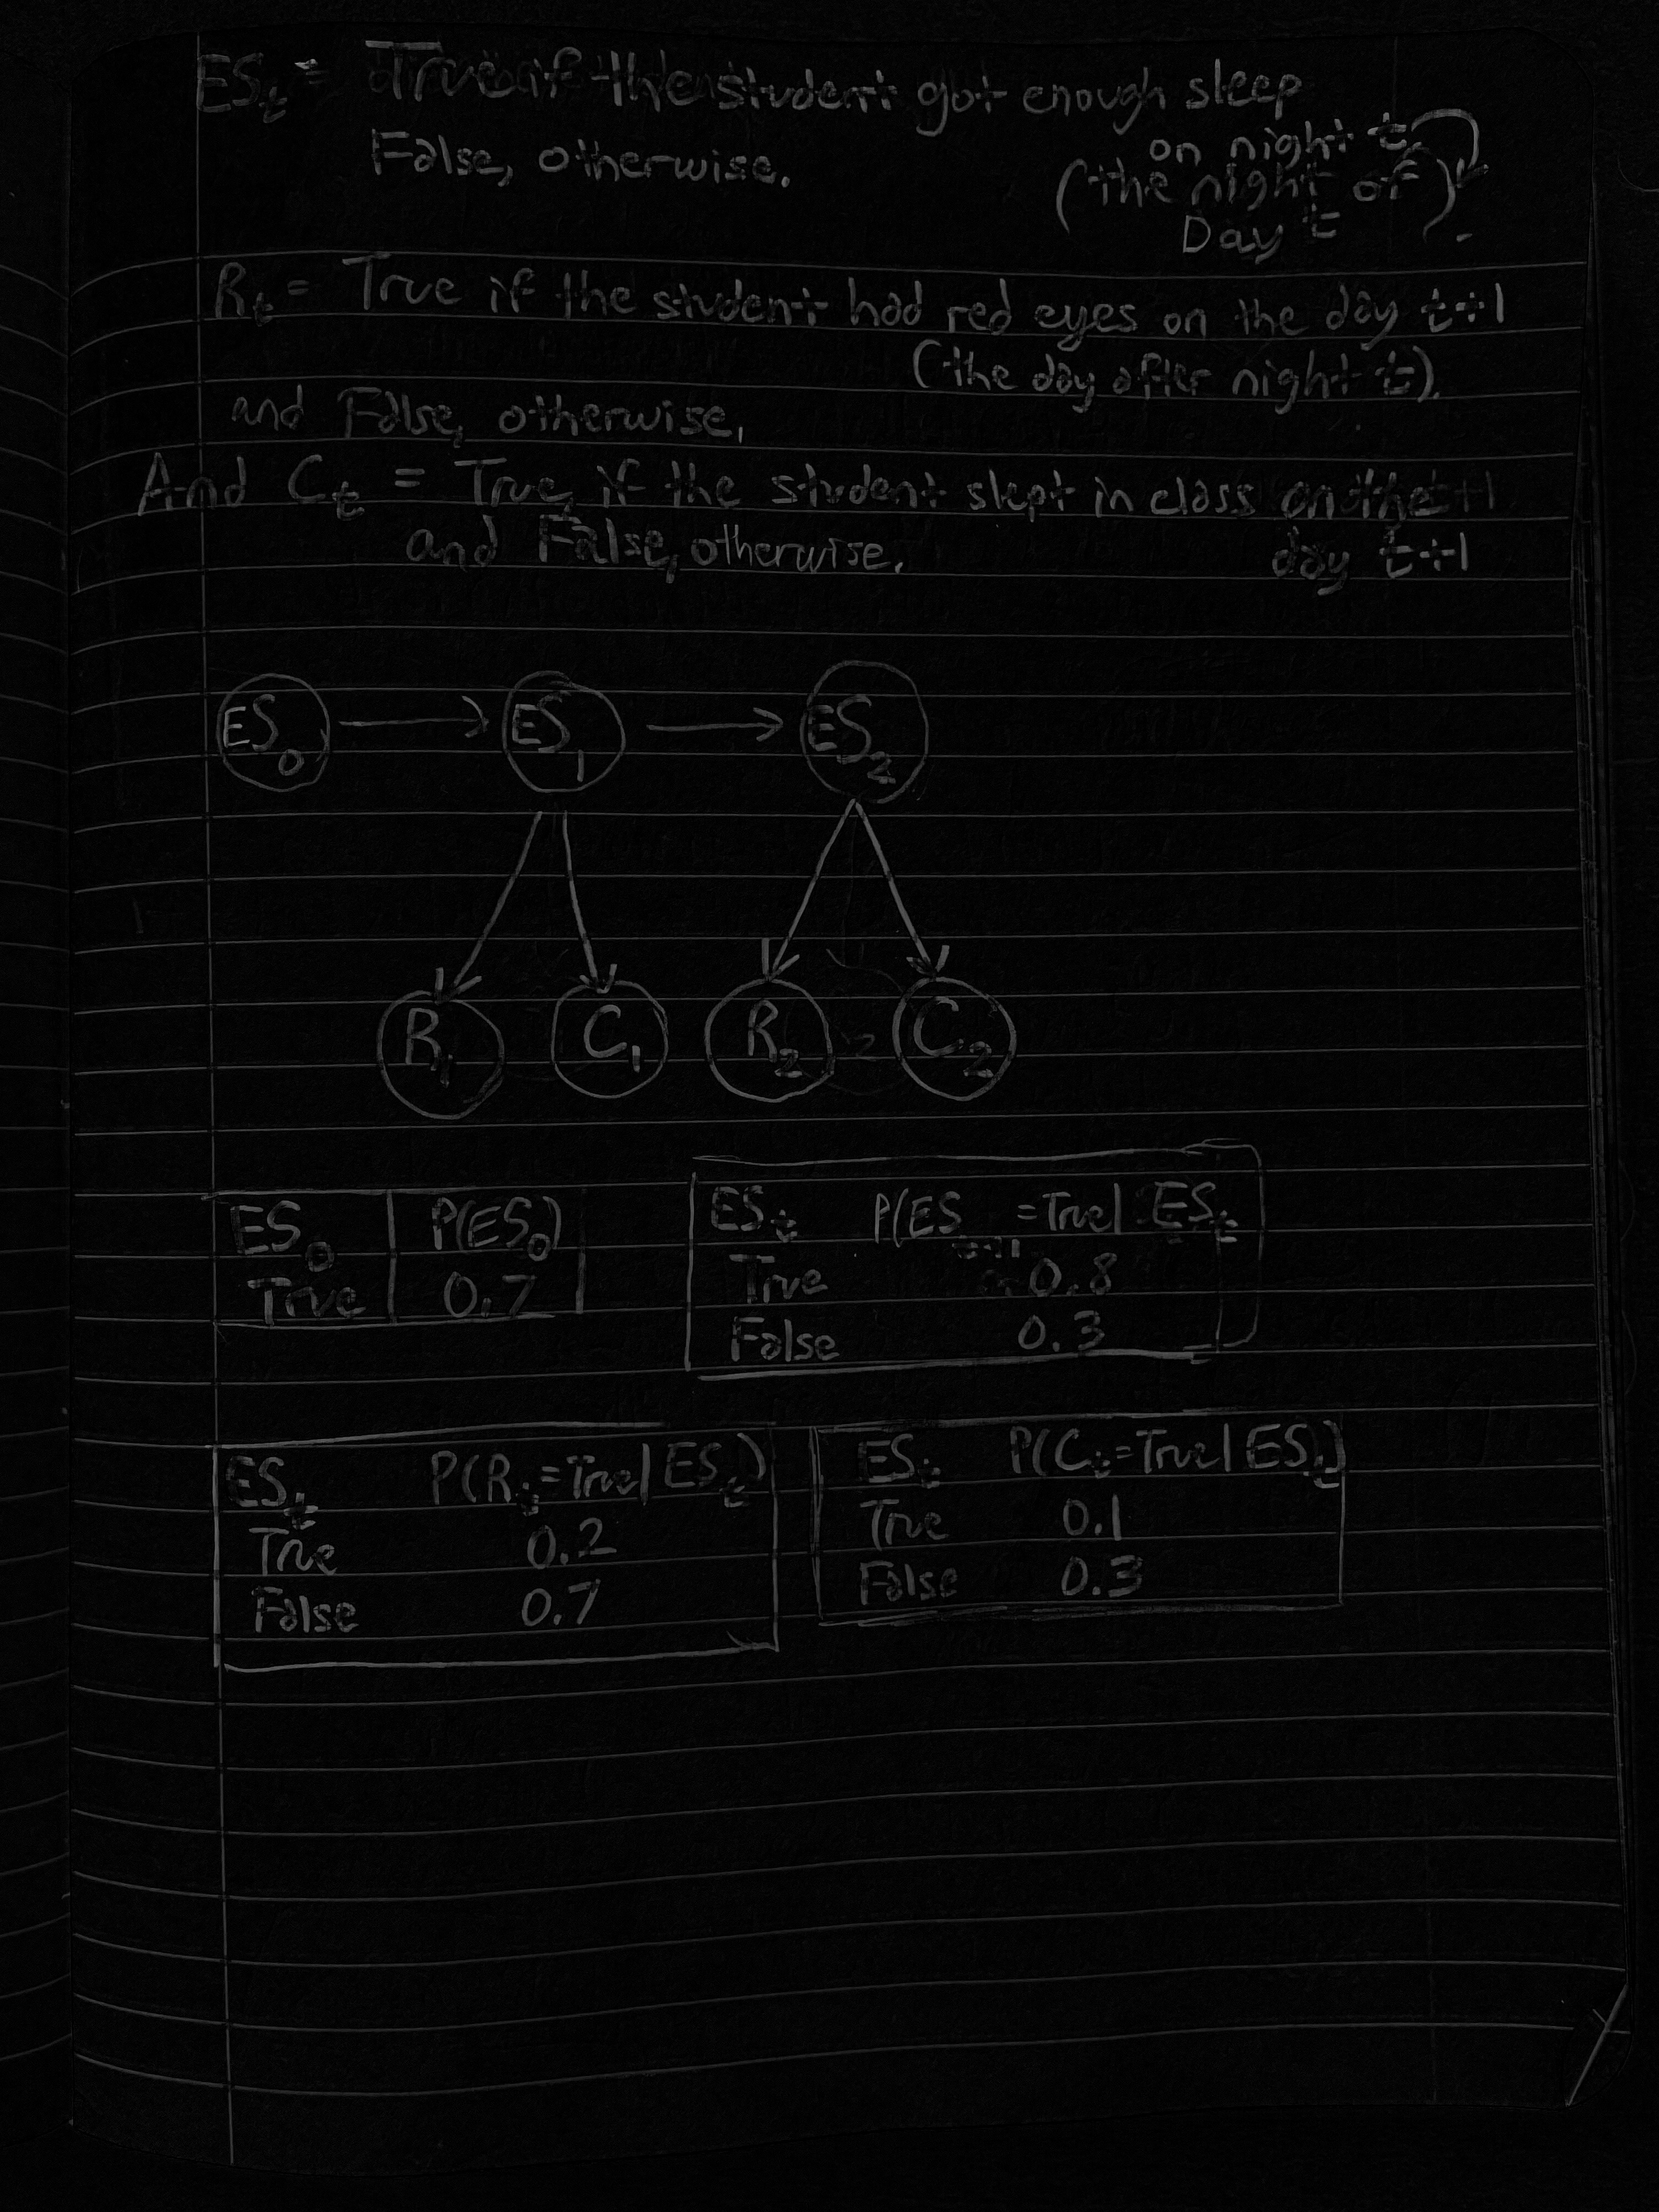 ES_t = True if the student got enough sleep
on night t
False, otherwise.
(the night of
Day t).
R_t = True if the student had red eyes on the day t+1
(the day after night t).
and False, otherwise.
And C_t = True, if the student slept in class on
and False, otherwise. day t+1
ES_0 ES_1 ES_2
R_1 C_1 R_2 C_2
ES_0 P(ES_0)
True 0.7
ES_t P(ES_t+1 =True| ES_t
True 0.8
False 0.3
ES_t P(R_t=True| ES_t)
True 0.2
False 0.7
ES_t P(C_t=True| ES_t)
True 0.1
False 0.3